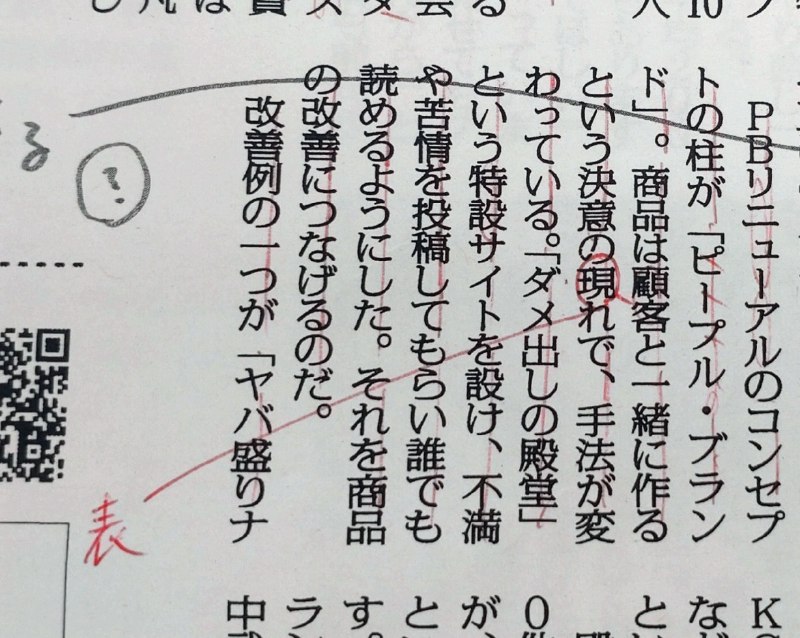 PBリニューアルのコンセプ
トの柱が「ピープル・ブラン
ド」。商品は顧客と一緒に作る
という決意の現れで、手法が変
わっている。「ダメ出しの殿堂」
という特設サイトを設け、不満
や苦情を投稿してもらい誰でも
読めるようにした。それを商品
の改善につなげるのだ。
改善例の一つが「ヤバ盛りナ
る
?
表